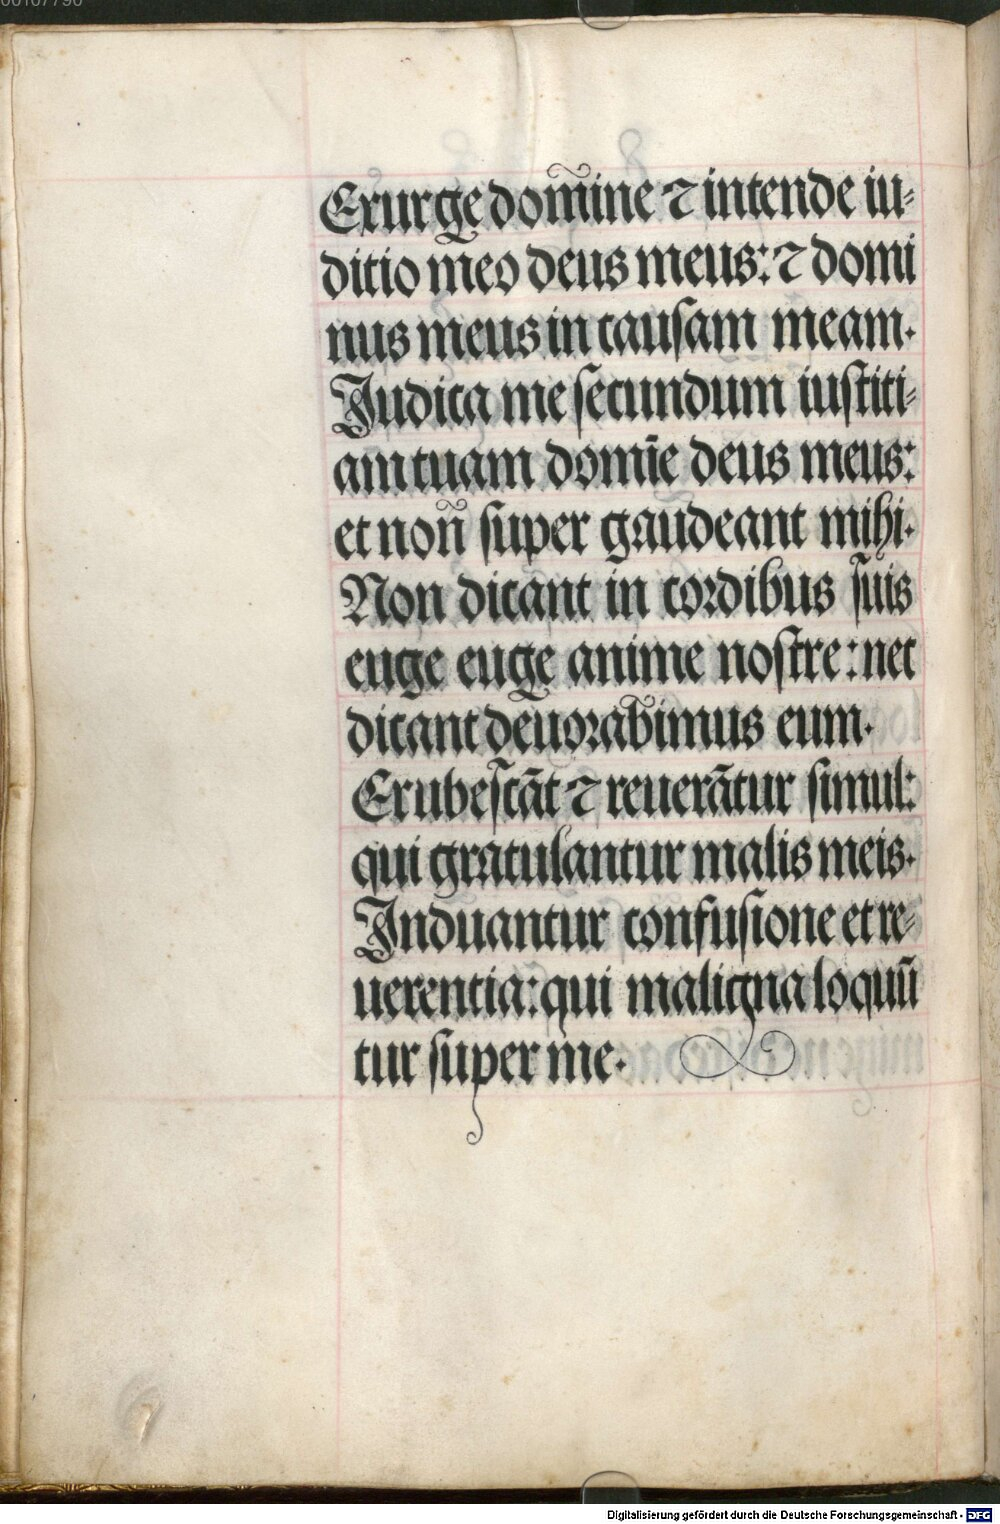 00107790
Exurge dom̃ine ⁊ intende iu⸗
ditio meo deus meus: ⁊ domi
nus meus in causam meam.
Judica me secundum iustiti⸗
am tuam domīe deus meus:
et non̄ super gaudeant mihi.
Non dicant in cordibus suis
euge euge anime nostre: nec
dicant deuorabimus eum.
Erubescāt ⁊ reuerātur simul:
qui gratulantur malis meis.
Induantur confusione et re⸗
uerentia: qui maligna loquū
tur super me.
Digitalisierung gefördert durch die Deutsche Forschungsgemeinschaft - DFG